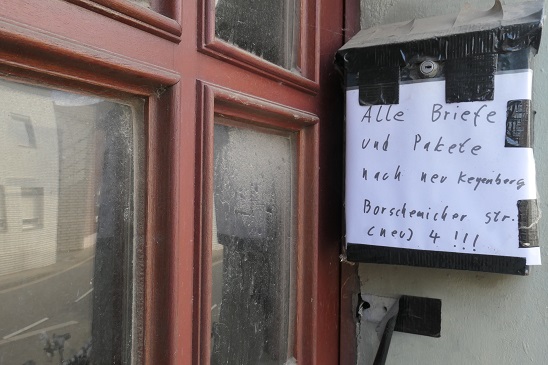 Alle Briefe
und Pakete
nach neu Keyenberg
Borschemicher str.
(neu) 4 !!!